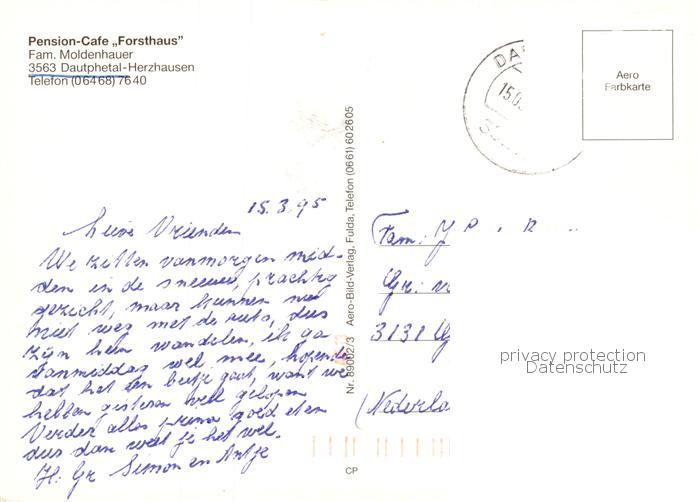 Pension-Cafe „Forsthaus"
Fam. Moldenhauer
3563 Dautphetal-Herzhausen
Telefon (0 64 68) 76 40
Aero
Farbkarte
15.3.95
Lieve Vrienden
We zitten vanmorgen mid-
den in de sneeuw, prachtig
gezicht, maar kunnen nu
niet weg met de auto, dus
zijn hem wandelen, ik ga
vanmiddag wel mee, hopende
dat het een beetje gaat, want we
hebben gisteren veel gelopen
Verder alles prima goed eten
dus dan weet je het wel.
H. Gr Simon en Antje
Nr. 89002/3 Aero-Bild-Verlag, Fulda, Telefon (0661) 602605
CP
Fam. J P
Gr.
3131
(Nederla
privacy protection
Datenschutz